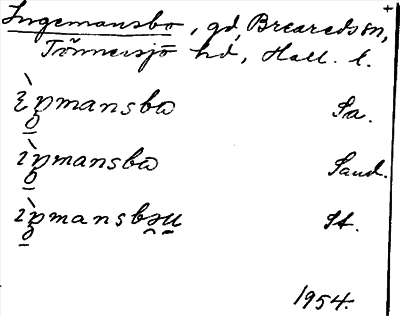 Ingemansbo, gd, Breareds sn, +
Tönnersjö hd, Hall. l.
ìŋmansbω Sa.
ìŋmansbω Sand.
ìŋmansbəu St.
1954.